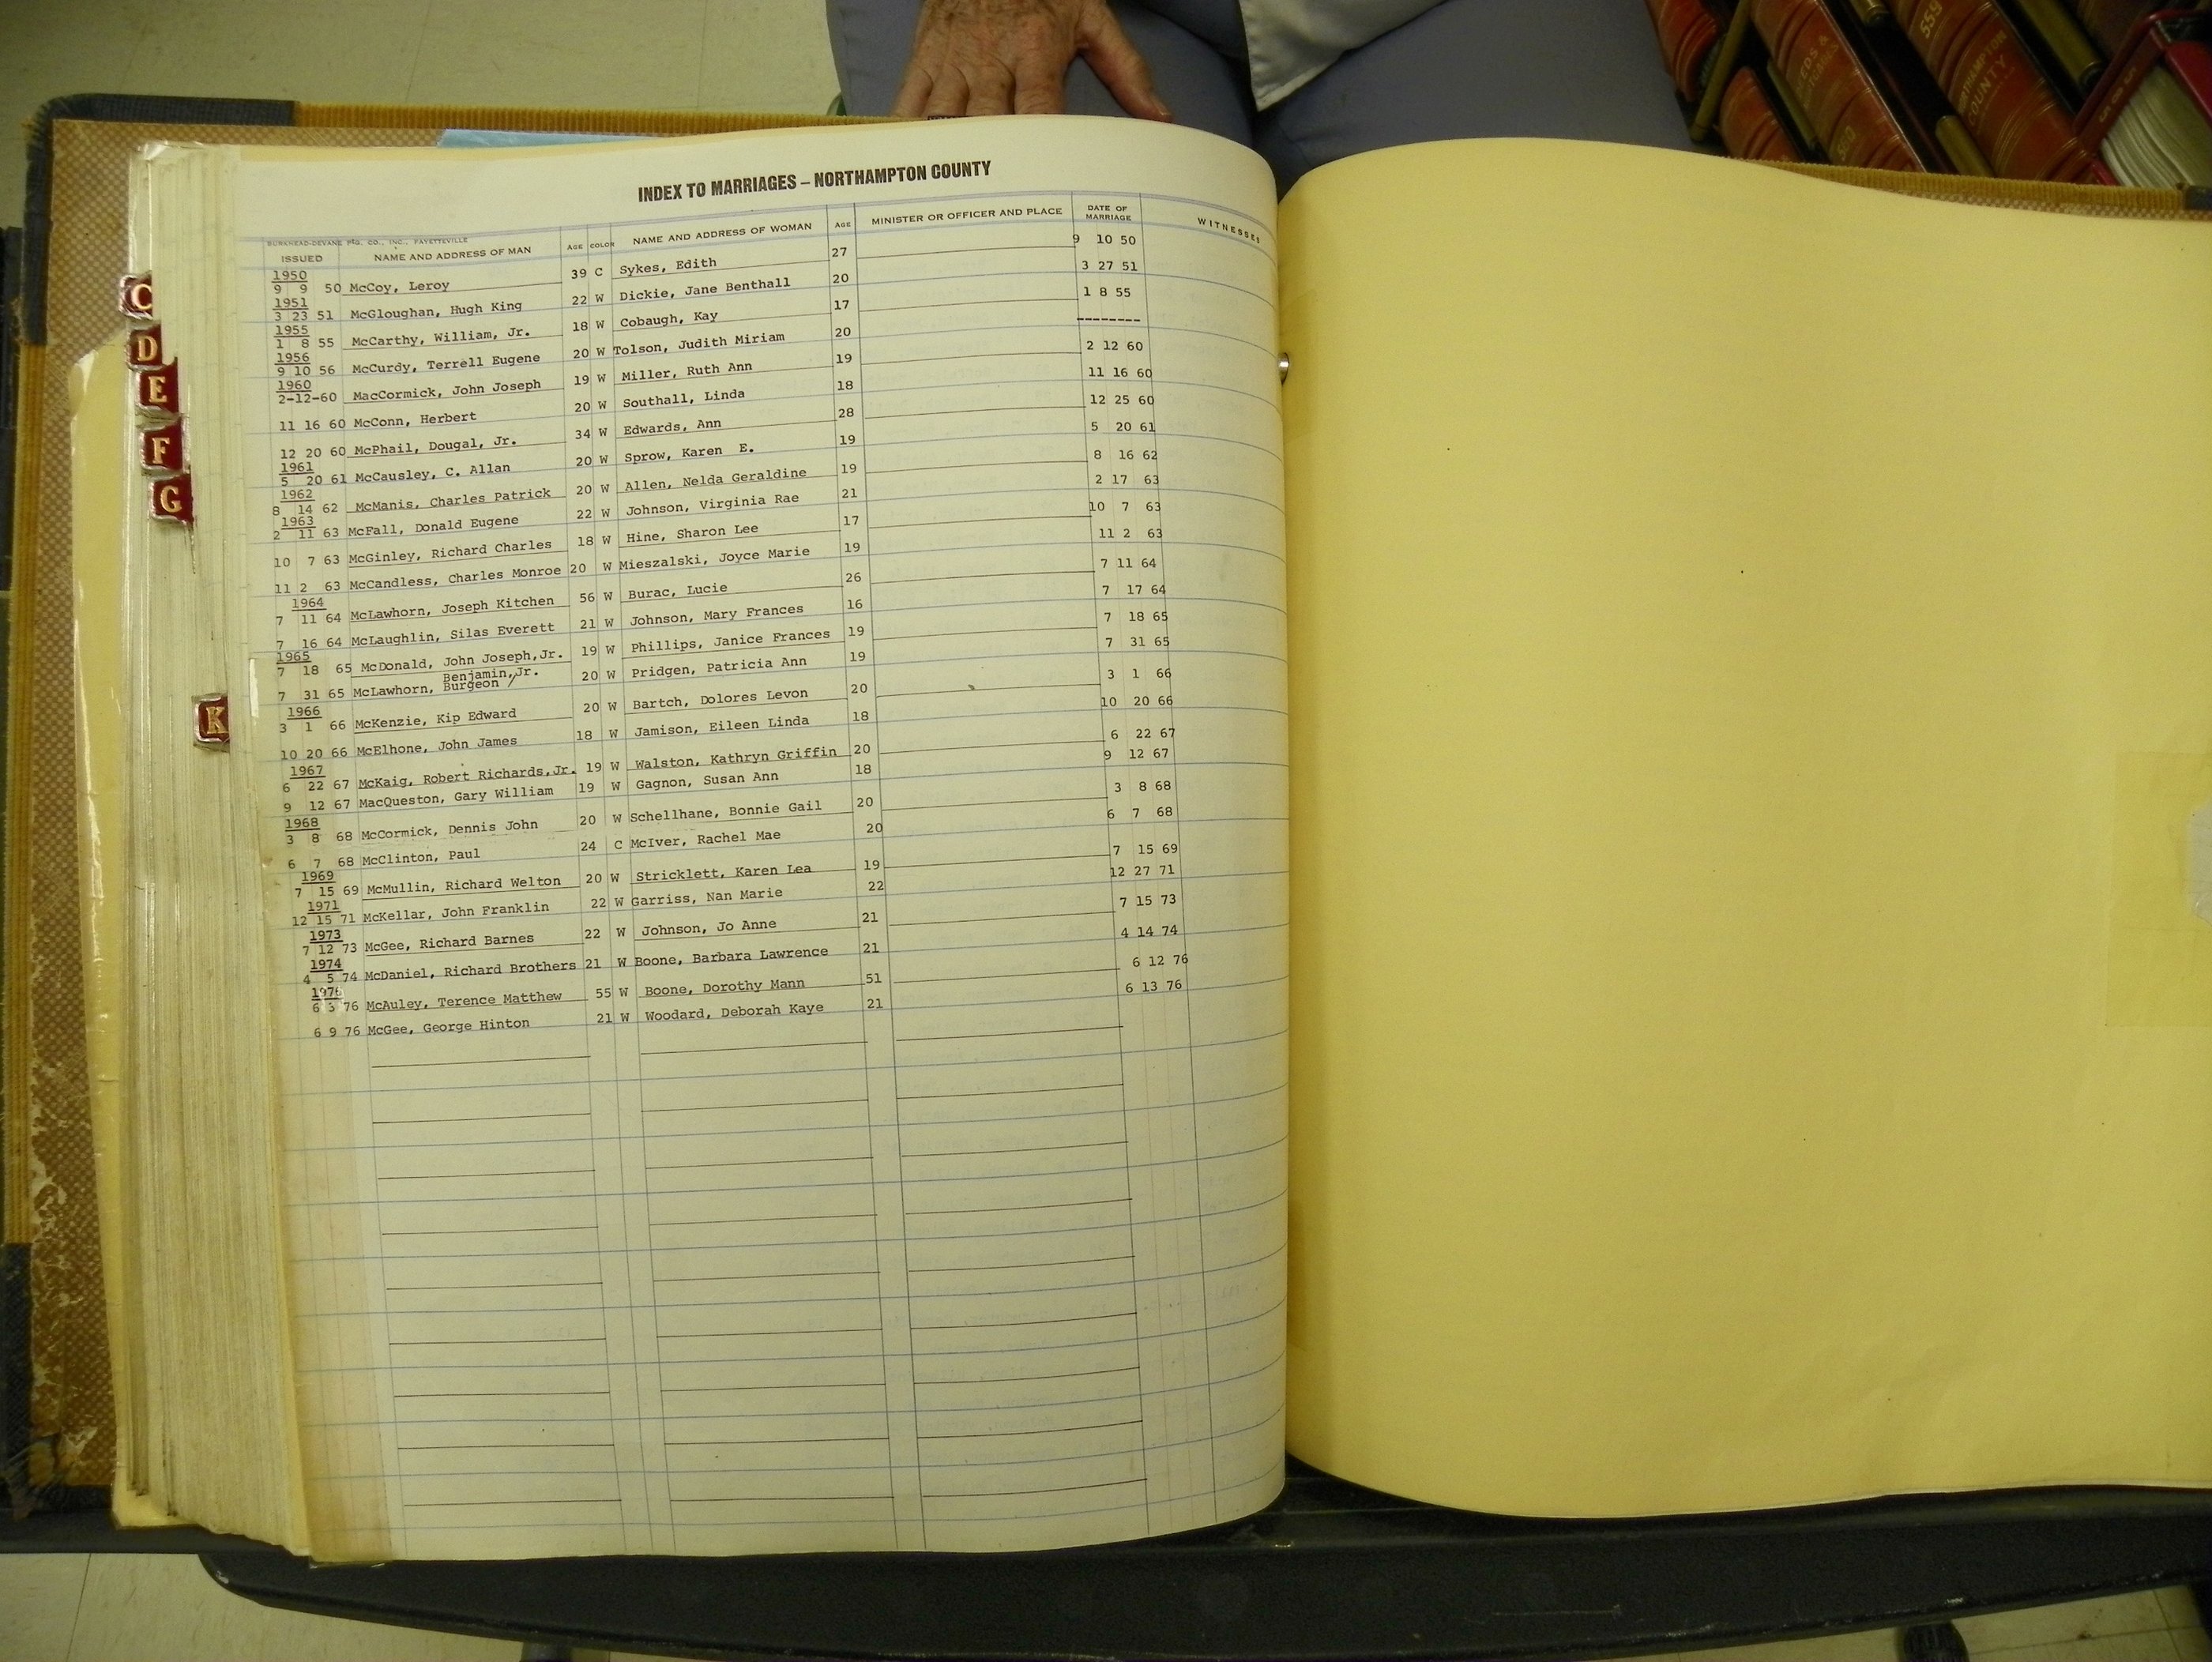 INDEX TO MARRIAGES – NORTHAMPTON COUNTY
BURKHEAD-DEVANE PTG. CO., INC., FAYETTEVILLE
ISSUED NAME AND ADDRESS OF MAN AGE COLOR NAME AND ADDRESS OF WOMAN AGE MINISTER OR OFFICER AND PLACE DATE OF MARRIAGE WITNESSES
1950
9 9 50 McCoy, Leroy 39 C Sykes, Edith 27 9 10 50
1951
3 23 51 McGloughan, Hugh King 22 W Dickie, Jane Benthall 20 3 27 51
1955
1 8 55 McCarthy, William, Jr. 18 W Cobaugh, Kay 17 1 8 55
1956
9 10 56 McCurdy, Terrell Eugene 20 W Tolson, Judith Miriam 20 --------
1960
2-12-60 MacCormick, John Joseph 19 W Miller, Ruth Ann 19 2 12 60
11 16 60 McConn, Herbert 20 W Southall, Linda 18 11 16 60
12 20 60 McPhail, Dougal, Jr. 34 W Edwards, Ann 28 12 25 60
1961
5 20 61 McCausley, C. Allan 20 W Sprow, Karen E. 19 5 20 61
1962
8 14 62 McManis, Charles Patrick 20 W Allen, Nelda Geraldine 19 8 16 62
1963
2 11 63 McFall, Donald Eugene 22 W Johnson, Virginia Rae 21 2 17 63
10 7 63 McGinley, Richard Charles 18 W Hine, Sharon Lee 17 10 7 63
11 2 63 McCandless, Charles Monroe 20 W Mieszalski, Joyce Marie 19 11 2 63
1964
7 11 64 McLawhorn, Joseph Kitchen 56 W Burac, Lucie 26 7 11 64
7 16 64 McLaughlin, Silas Everett 21 W Johnson, Mary Frances 16 7 17 64
1965
7 18 65 McDonald, John Joseph,Jr. 19 W Phillips, Janice Frances 19 7 18 65
Benjamin,Jr.
7 31 65 McLawhorn, Burgeon / 20 W Pridgen, Patricia Ann 19 7 31 65
1966
3 1 66 McKenzie, Kip Edward 20 W Bartch, Dolores Levon 20 3 1 66
10 20 66 McElhone, John James 18 W Jamison, Eileen Linda 18 10 20 66
1967
6 22 67 McKaig, Robert Richards,Jr. 19 W Walston, Kathryn Griffin 20 6 22 67
9 12 67 MacQueston, Gary William 19 W Gagnon, Susan Ann 18 9 12 67
1968
3 8 68 McCormick, Dennis John 20 W Schellhane, Bonnie Gail 20 3 8 68
6 7 68 McClinton, Paul 24 C McIver, Rachel Mae 20 6 7 68
1969
7 15 69 McMullin, Richard Welton 20 W Stricklett, Karen Lea 19 7 15 69
1971
12 15 71 McKellar, John Franklin 22 W Garriss, Nan Marie 22 12 27 71
1973
7 12 73 McGee, Richard Barnes 22 W Johnson, Jo Anne 21 7 15 73
1974
4 5 74 McDaniel, Richard Brothers 21 W Boone, Barbara Lawrence 21 4 14 74
1976
6 3 76 McAuley, Terence Matthew 55 W Boone, Dorothy Mann 51 6 12 76
6 9 76 McGee, George Hinton 21 W Woodard, Deborah Kaye 21 6 13 76
C
D
E
F
G
K
559
NORTHAMPTON
COUNTY
560